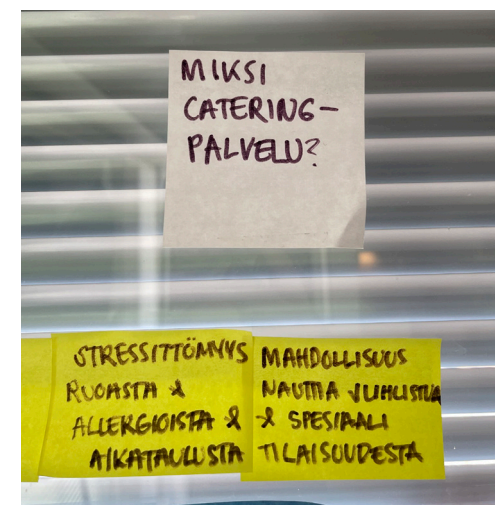 MIKSI
CATERING-
PALVELU?
STRESSITTÖMYYS
RUOASTA &
ALLERGIOISTA &
AIKATAULUSTA
MAHDOLLISUUS
NAUTTIA JUHLISTA
& SPESIAALI
TILAISUUDESTA